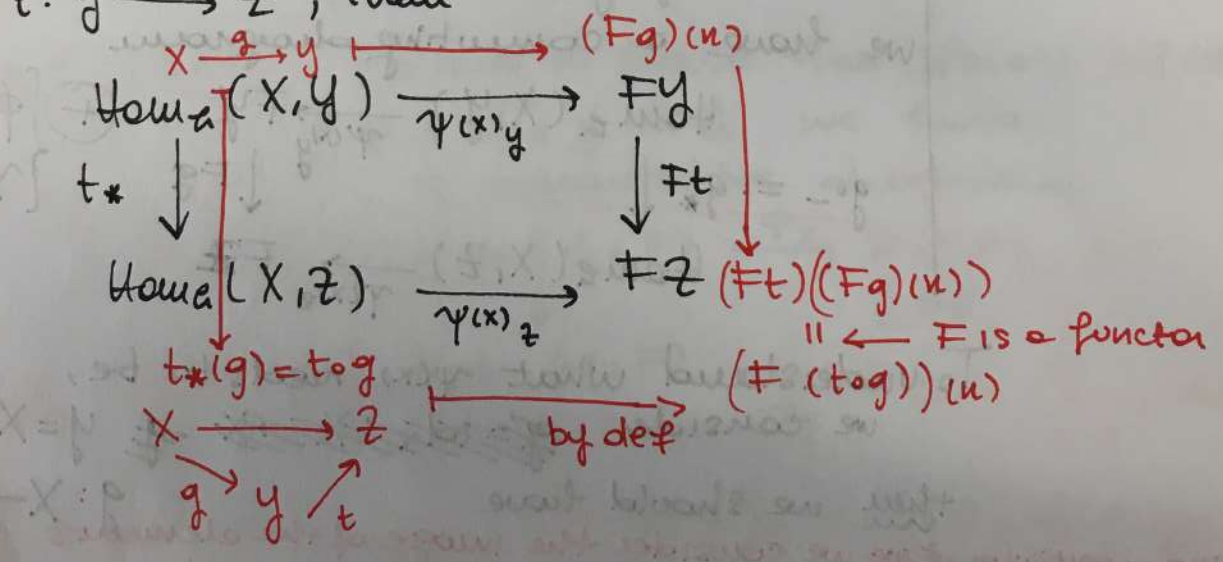 t: y → Z, then
X —g→ y ⟼ (Fg)(x)
Hom_a(X, Y) —ψ(x)_y→ FY
t_* ↓ ↓ Ft
Hom_a(X, Z) —ψ(x)_z→ FZ (Ft)((Fg)(x))
|| ← F is a functor
t_*(g) = t∘g ⟼ by def (F(t∘g))(x)
X → Z
g ↘ y ↗ t